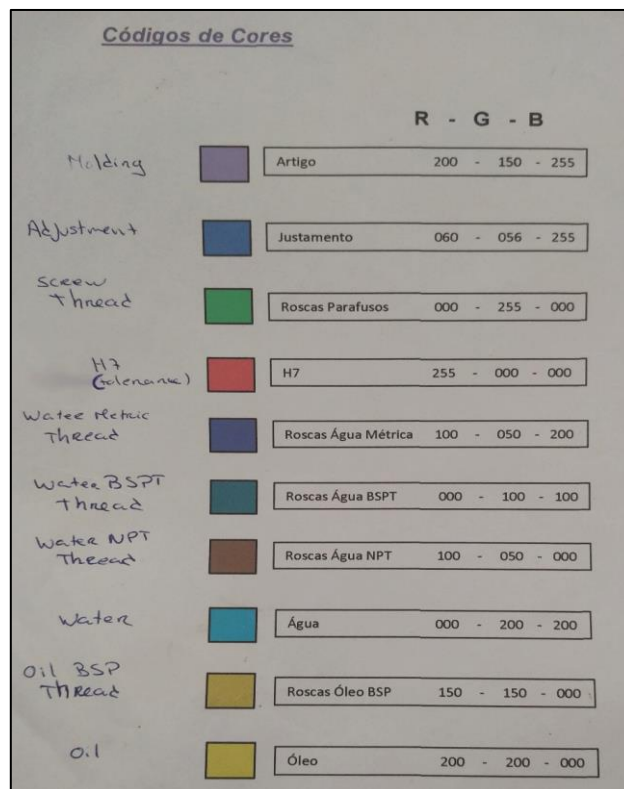 Códigos de Cores
R - G - B
Molding Artigo 200 - 150 - 255
Adjustment Justamento 060 - 056 - 255
Screw
Thread Roscas Parafusos 000 - 255 - 000
H7
(tolerance) H7 255 - 000 - 000
Water Metric
Thread Roscas Água Métrica 100 - 050 - 200
Water BSPT
Thread Roscas Água BSPT 000 - 100 - 100
Water NPT
Thread Roscas Água NPT 100 - 050 - 000
Water Água 000 - 200 - 200
Oil BSP
Thread Roscas Óleo BSP 150 - 150 - 000
Oil Óleo 200 - 200 - 000